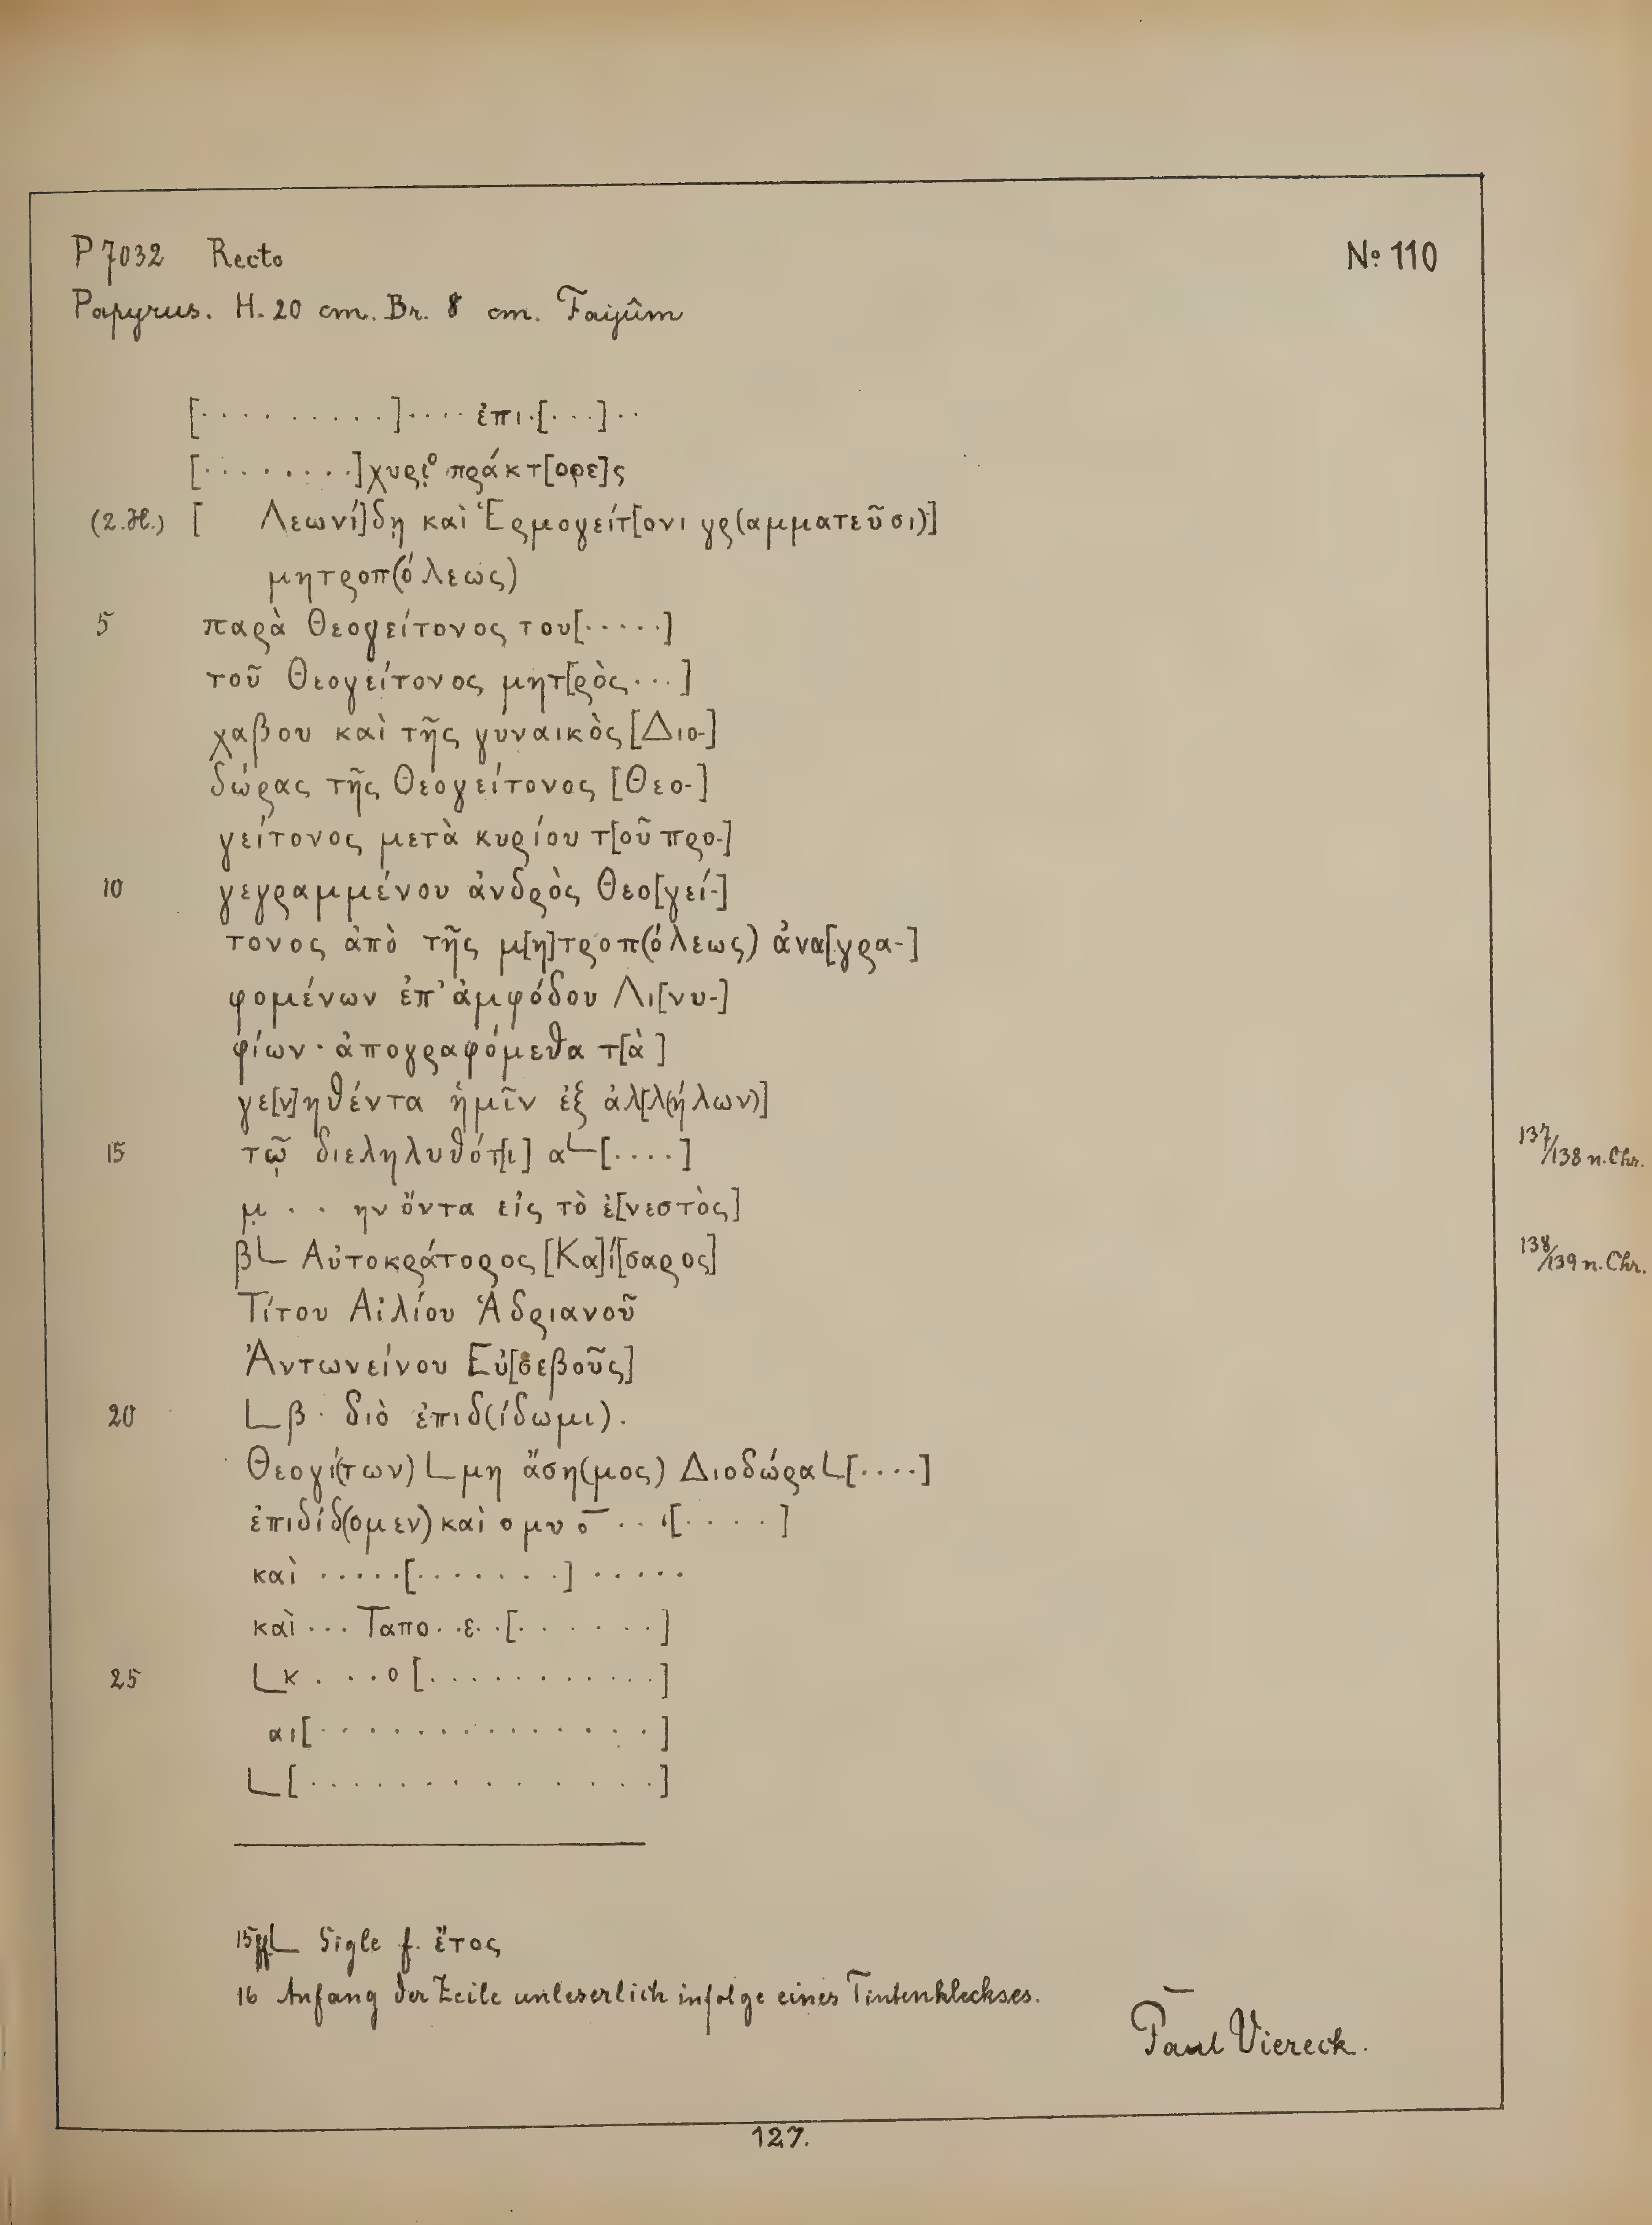 P 7032 Recto
No 110
Papyrus. H. 20 cm. Br. 8 cm. Faijûm
[· · · · · · · · ·]· · · · ἐπι·[· · ·]· ·
[· · · · · · · ·]χυρι̣ο πράκτ[ορε]ς
(2. H.) [ Λεωνί]δῃ καὶ Ἑρμογείτ[ονι γρ(αμματεῦσι)]
μητροπ(όλεως)
5 παρὰ Θεογείτονος του[· · · · ·]
τοῦ Θεογείτονος μητ[ρὸς · · ·]
χαβου καὶ τῆς γυναικὸς [Διο-]
δώρας τῆς Θεογείτονος [Θεο-]
γείτονος μετὰ κυρίου τ[οῦ προ-]
10 γεγραμμένου ἀνδρὸς Θεο[γεί-]
τονος ἀπὸ τῆς μ[η]τροπ(όλεως) ἀνα[γρα-]
φομένων ἐπ' ἀμφόδου Λι[νυ-]
φίων · ἀπογραφόμεθα τ[ὰ ]
γε[ν]ηθέντα ἡμῖν ἐξ ἀλ[λ(ήλων)]
15 τῷ διεληλυθότ[ι] α└[· · · ·] 137/138 n. Chr.
μ̣ · · ην ὄντα εἰς τὸ ἐ[νεστὸς]
β└ Αὐτοκράτορος [Κα]ί[σαρος] 138/139 n. Chr.
Τίτου Αἰλίου Ἁδριανοῦ
Ἀντωνείνου Εὐ[σεβοῦς]
20 └β · διὸ ἐπιδ(ίδωμι).
Θεογί(των) └μη ἄση(μος) Διοδώρα└[· · · ·]
ἐπιδίδ(ομεν) καὶ ομυ ο̅ · · ι[· · · · ]
καὶ · · · · ·[· · · · · · ·] · · · · ·
καὶ · · · Ταπο · · ε · ·[· · · · · · ·]
25 └κ · · · · ο[· · · · · · · · · · ·]
αι[· · · · · · · · · · · · · ·]
└[· · · · · · · · · · · · ·]
15ff└ Sigle f. ἔτος
16 Anfang der Zeile unleserlich infolge eines Tintenkleckses.
Paul Viereck.
127.